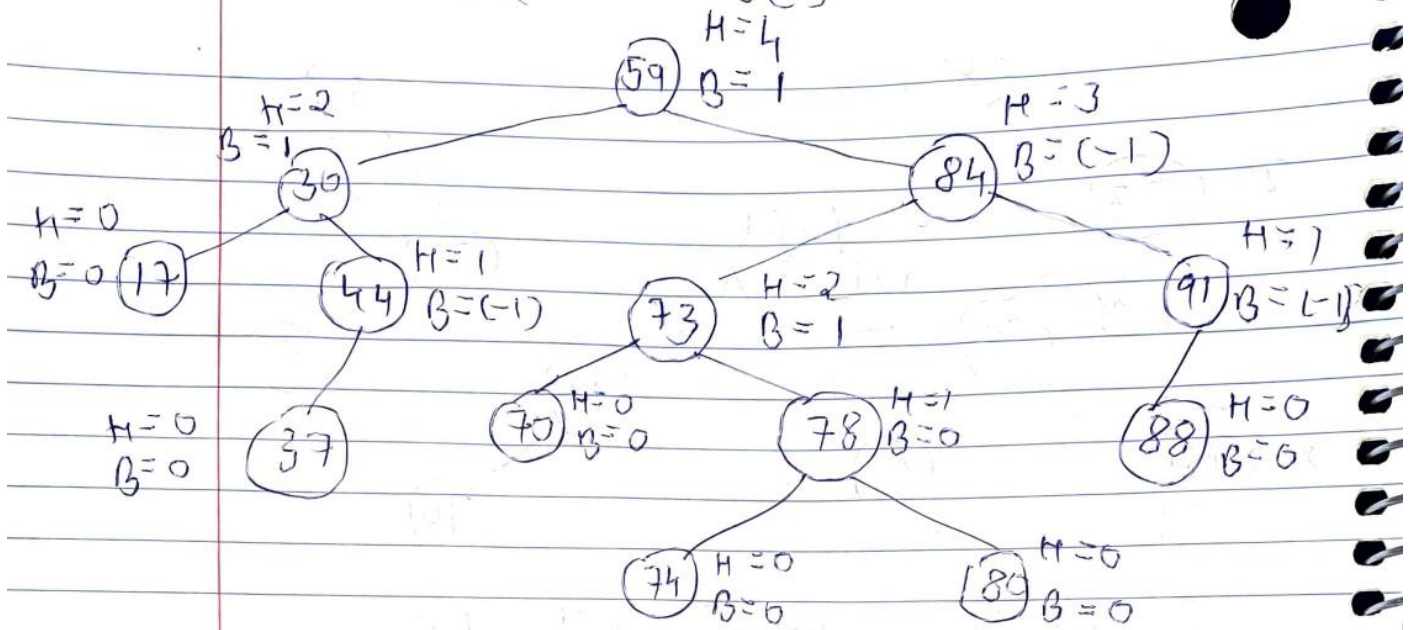 H=4
59 B=1
H=2
B=1
30
H=3
84 B=(-1)
H=0
B=0 17
H=1
44 B=(-1)
H=2
73 B=1
H=1
91 B=(-1)
H=0
B=0 37
70 H=0
B=0
78 H=1
B=0
88 H=0
B=0
74 H=0
B=0
80 H=0
B=0